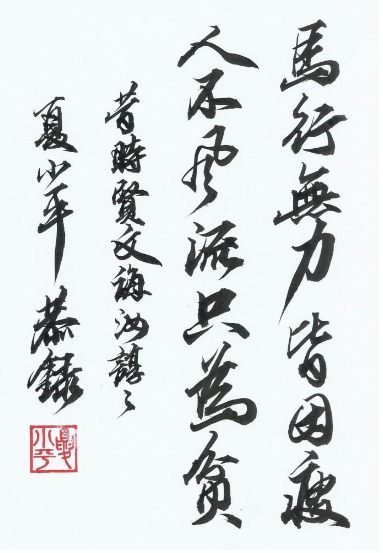 馬行無力皆因瘦
人不风流只為貧
昔時賢文誨汝諄〻
夏小平恭錄
夏小平